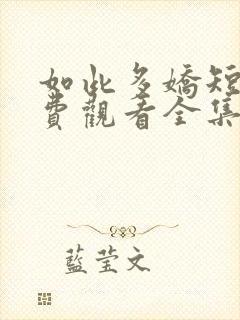 如此多嬌短
費觀看全集
藍莹文